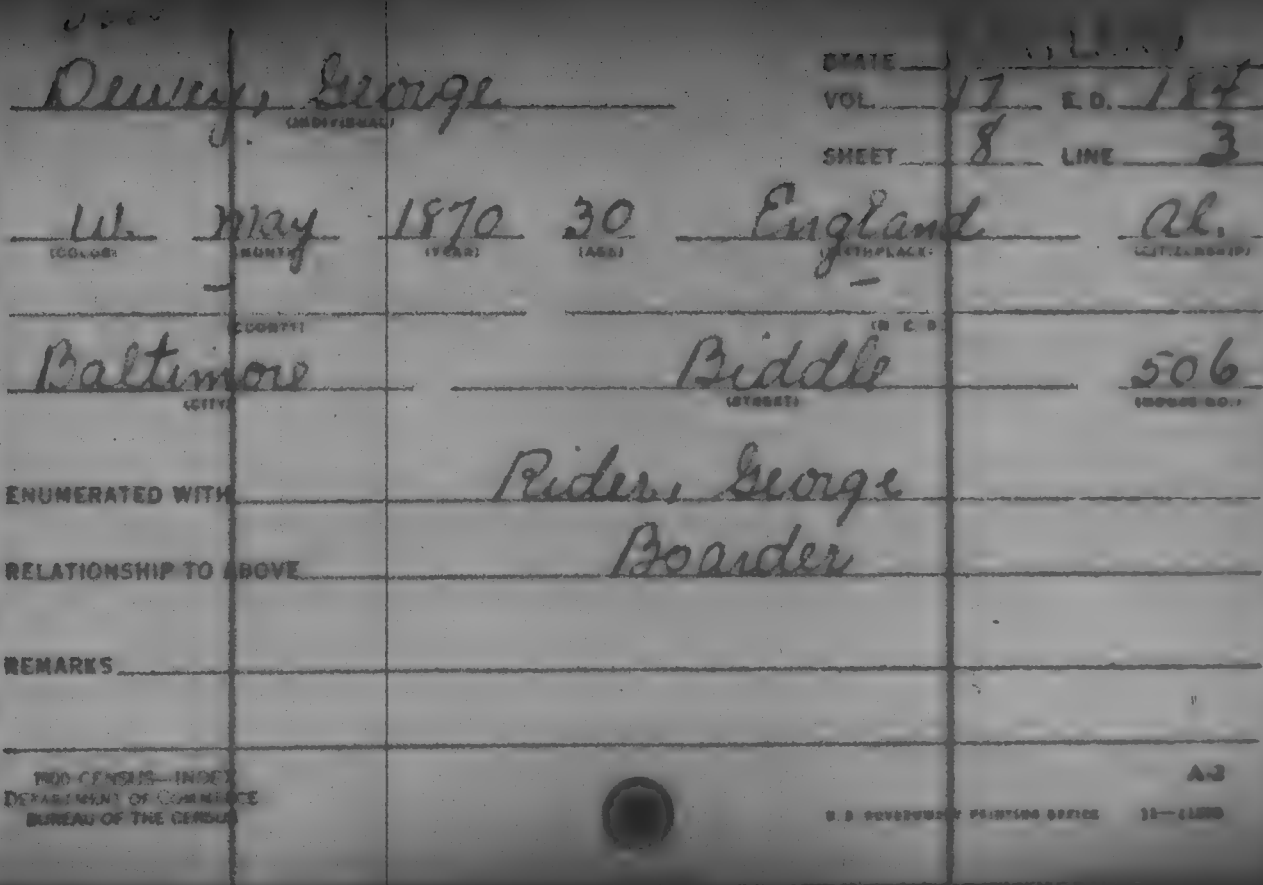 Dewey, George
(INDIVIDUAL)
STATE
VOL. 17 E.D. 184
SHEET 8 LINE 3
W. May 1870 30 England Al.
(COLOR) (MONTH) (YEAR) (AGE) (BIRTHPLACE) (CITIZENSHIP)
— —
(COUNTY) (M. C. D.)
Baltimore Biddle 506
(CITY) (STREET) (HOUSE NO.)
ENUMERATED WITH Rider, George
RELATIONSHIP TO ABOVE Boarder
REMARKS
1900 CENSUS—INDEX
DEPARTMENT OF COMMERCE
BUREAU OF THE CENSUS
A-2
U.S. GOVERNMENT PRINTING OFFICE